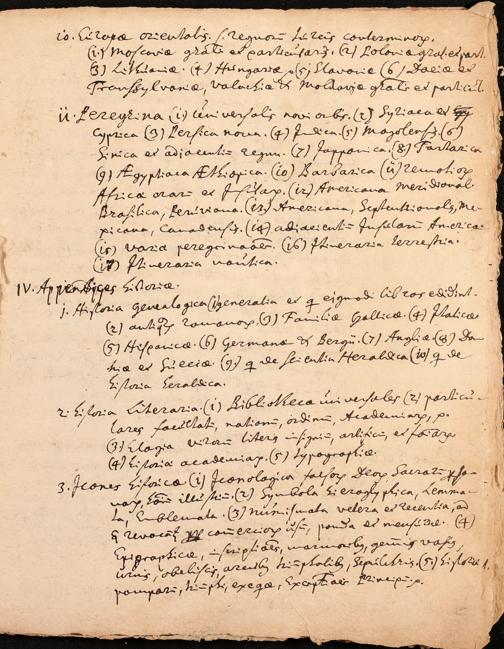 10. Europae orientalis. s. regnorum Turcis conterminorum.
(1) Moscoviae gralis et particularis. (2) Poloniae gral. et part.
(3) Lithuaniae. (4) Hungariae (5) Slavoniae (6) Daciae et
Transsylvaniae, Valachiae & Moldaviae gralis et particul.
11. Peregrina (1) Universalis novi orbis. (2) Syriaca et
Cyprica (3) Persica nova. (4) Indica. (5) Mogolensis. (6)
Sinica et adiacentium regnorum. (7) Japponica. (8) Tartarica
(9) Aegyptiaca Aethiopica. (10) Barbarica (11) remotiorum
Africae orarum et Insularum. (12) Americana meridional.
Brasilica, Peruviana. (13) Americana, Septentrionalis, Me-
xicana, Canadensis. (14) adiacentium Insularum Americae
(15) varia peregrinationes. (16) Itineraria terrestria.
(17) Itineraria nautica.
IV. Appendices Historiae.
1. Historia Genealogica (1) generalia et q eiusmodi libros edidint.
(2) antiq. romanorum. (3) Familiae Gallicae (4) Italicae
(5) Hispanicae (6) Germanae & Belgii. (7) Angliae (8) Da-
niae et Sueciae (9) q de scientia Heraldica (10) q de
historia heraldica.
2. Historia Literaria. (1) Bibliothecae universales (2) particu-
lares facultatum, nationum, ordinum, Academiarum, p.
(3) Elogia virorum literis insignium, artificum, et
(4) Historia academiarum. (5) Typographiae.
3. Icones Historicae (1) Iconologica falsorum Deorum, Sacrarum perso-
narum, illustrium. (2) Symbola Hieroglyphica, Lemma-
ta, Emblemata. (3) Numismata vetera et recentia, ad
q revocant commerciorum usum, pondera et mensurae. (4)
Epigraphicae, inscriptiones, marmoribus, gemmis vasis,
urnis, obeliscis, arcubus triumphalibus, sepulchris. (5) Historia
pomparum, triumphi, exequiae, Exceptiones Principum.